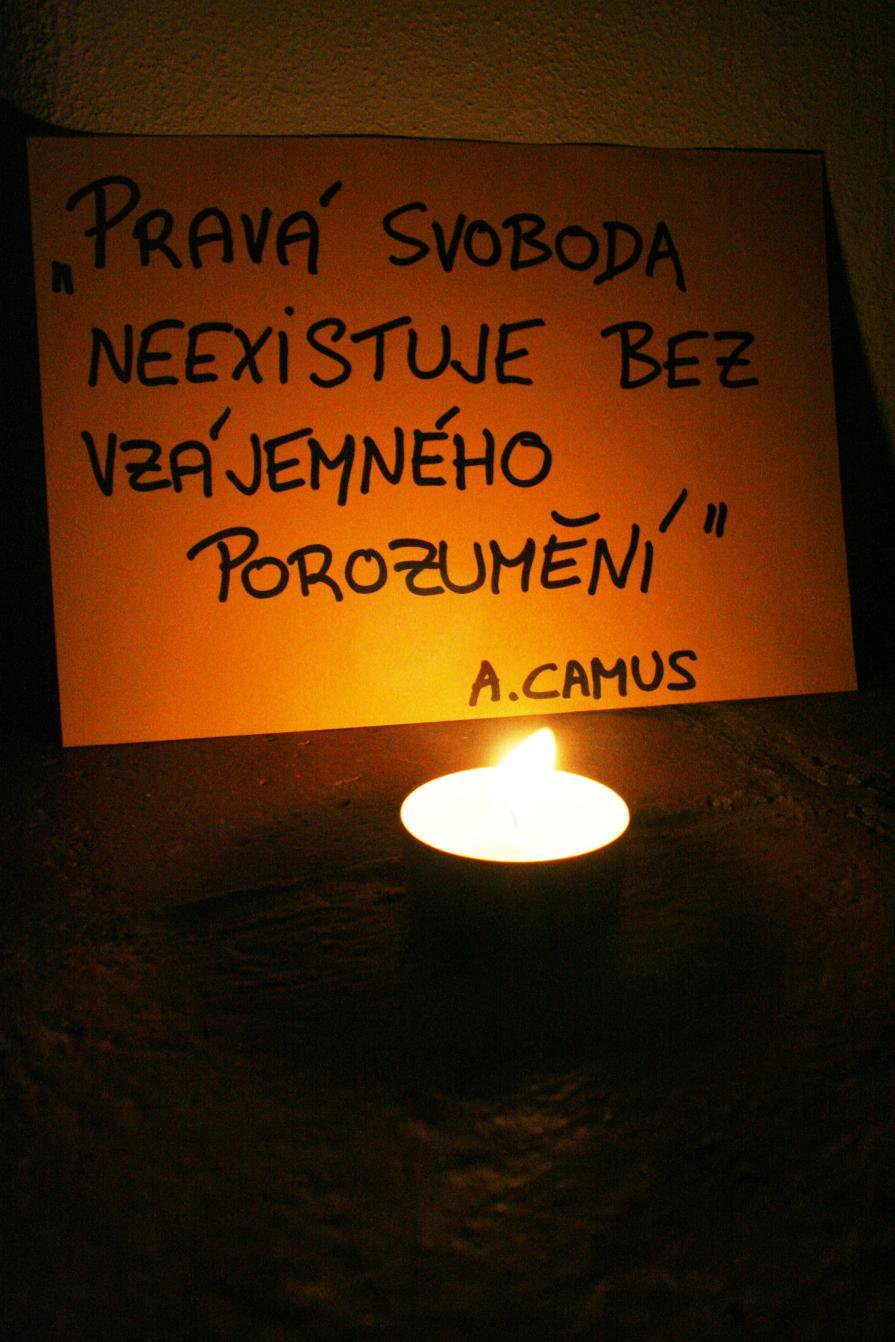 „PRAVÁ SVOBODA
NEEXiSTUJE BEZ
VZÁJEMNÉHO
POROZUMĚNÍ"
A.CAMUS